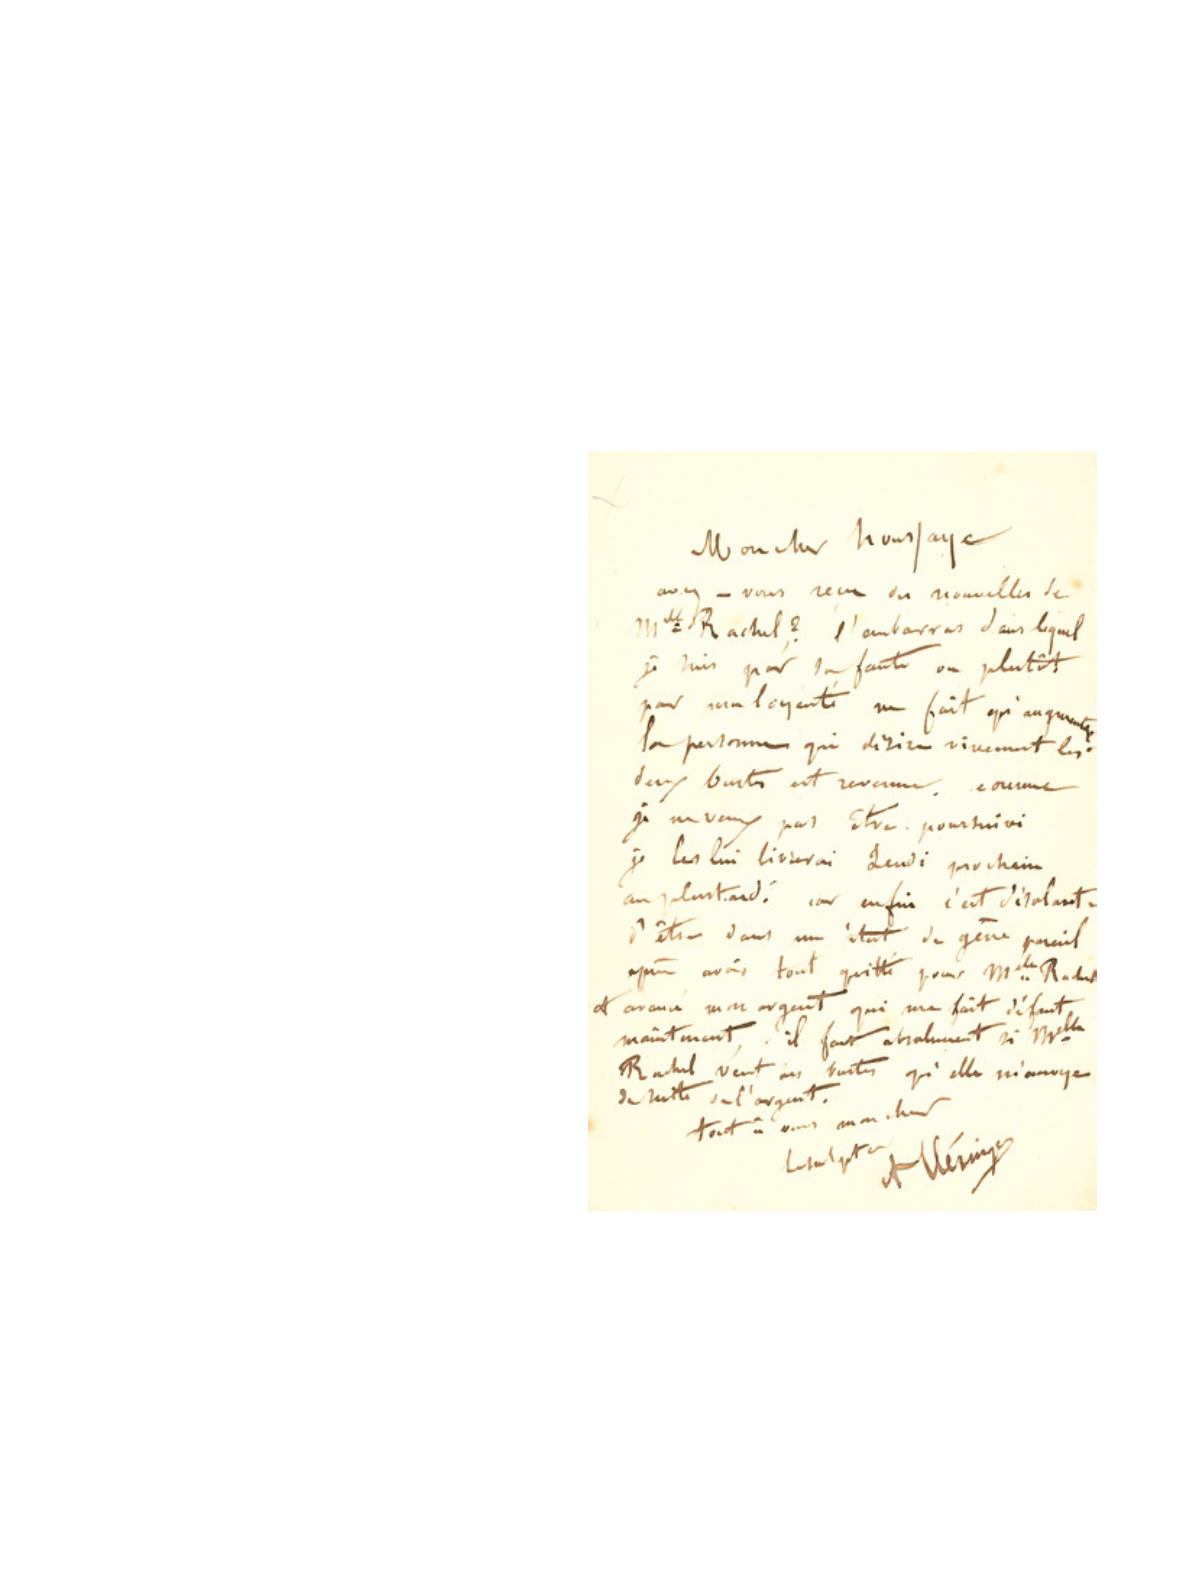 Mon cher houssaye
avez-vous reçu des nouvelles de
Mlle Rachel? l'embarras dans lequel
je suis par sa faute ou plutôt
par ma loyauté ne fait qu'augmenter
la personne qui désire vivement les
deux bustes est revenue. comme
je ne veux pas être poursuivi
je les lui livrerai Jeudi prochain
au plus tard. car enfin c'est désolant
d'être dans un état de gêne pareil
après avoir tout quitté pour Mlle Rachel
et avancé mon argent qui me fait défaut
maintenant, il faut absolument si Melle
Rachel veut ses bustes qu'elle m'envoye
de suite de l'argent.
tout à vous mon cher
A Clésinger